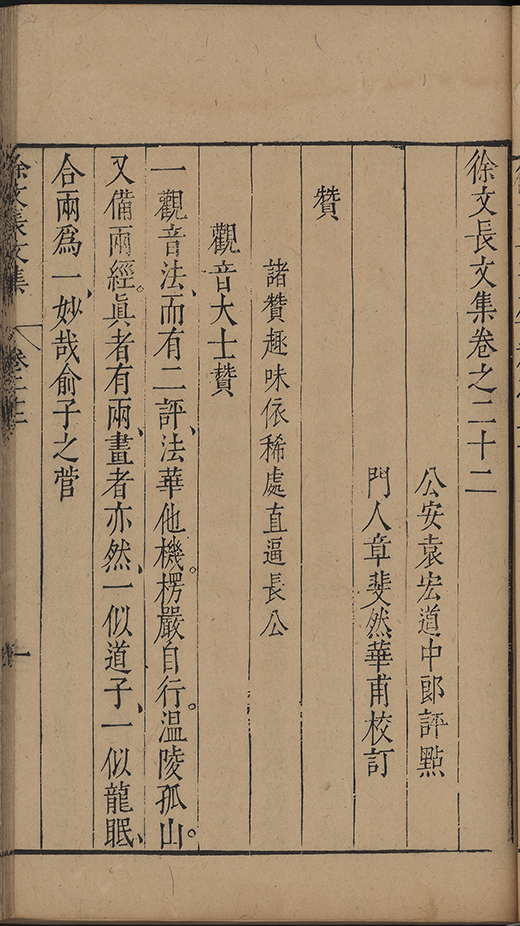 徐文長文集卷之二十二
公安袁宏道中郎評點
門人章斐然華甫校訂
贊
諸贊趣味依稀處直逼長公
觀音大士贊
一觀音法、而有二評、法華他機。楞嚴自行。溫陵孤山。
又備兩經。眞者有兩、畫者亦然、一似道子、一似龍眠、
合兩爲一、妙哉俞子之菅
徐文長文集 卷二十二 一